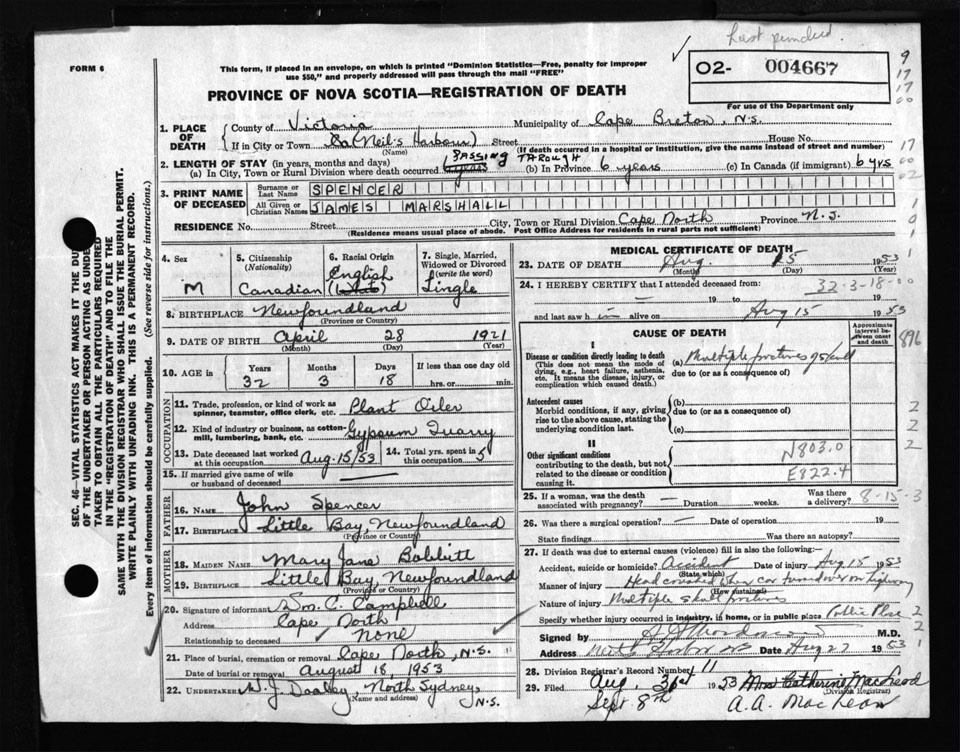 Last pended.
FORM 6
This form, if placed in an envelope, on which is printed "Dominion Statistics—Free, penalty for improper
use $50," and properly addressed will pass through the mail "FREE"
02- 004667
For use of the Department only
PROVINCE OF NOVA SCOTIA—REGISTRATION OF DEATH
9
17
17
00
17
00
02
1
0
1
SEC. 46—VITAL STATISTICS ACT MAKES IT THE DUTY
OF THE UNDERTAKER OR PERSON ACTING AS UNDER-
TAKER TO OBTAIN ALL THE PARTICULARS REQUIRED
IN THE "REGISTRATION OF DEATH" AND TO FILE THE
SAME WITH THE DIVISION REGISTRAR WHO SHALL ISSUE THE BURIAL PERMIT.
WRITE PLAINLY WITH UNFADING INK. THIS IS A PERMANENT RECORD.
Every item of information should be carefully supplied. (See reverse side for instructions.)
1. PLACE OF DEATH
County of Victoria Municipality of Cape Breton, N.S.
If in City or Town (Neil's Harbour) Street House No.
(Name) (If death occurred in a hospital or institution, give the name instead of street and number)
2. LENGTH OF STAY (in years, months and days) PASSING THROUGH
(a) In City, Town or Rural Division where death occurred (b) In Province 6 years (c) In Canada (if immigrant) 6 yrs
3. PRINT NAME OF DECEASED
Surname or Last Name SPENCER
All Given or Christian Names JAMES MARSHALL
RESIDENCE No. Street City, Town or Rural Division Cape North Province N.S.
(Residence means usual place of abode. Post Office Address for residents in rural parts not sufficient)
4. Sex
M
5. Citizenship
(Nationality)
Canadian
6. Racial Origin
English
7. Single, Married,
Widowed or Divorced
(write the word)
Single
8. BIRTHPLACE Newfoundland
(Province or Country)
9. DATE OF BIRTH April 28 1921
(Month) (Day) (Year)
10. AGE in
Years Months Days If less than one day
32 3 18 hrs. or min.
OCCUPATION
11. Trade, profession, or kind of work as
spinner, teamster, office clerk, etc. Plant Oiler
12. Kind of industry or business, as cotton-
mill, lumbering, bank, etc. Gypsum Quarry
13. Date deceased last worked
at this occupation Aug. 15/53
14. Total yrs. spent in
this occupation 5
15. If married give name of wife
or husband of deceased
FATHER
16. NAME John Spencer
17. BIRTHPLACE Little Bay, Newfoundland
(Province or Country)
MOTHER
18. MAIDEN NAME Mary Jane Bobbitt
19. BIRTHPLACE Little Bay, Newfoundland
(Province or Country)
20. Signature of informant Wm. C. Campbell
Address Cape North
Relationship to deceased None
21. Place of burial, cremation or removal Cape North, N.S.
Date of burial or removal August 18, 1953
22. UNDERTAKER J. Dooley, North Sydney, N.S.
(Name and address)
MEDICAL CERTIFICATE OF DEATH
23. DATE OF DEATH Aug. 15 1953
(Month) (Day) (Year)
24. I HEREBY CERTIFY that I attended deceased from: 32-3-18-00
— 19 to Aug 15 1953
and last saw h — alive on 19
CAUSE OF DEATH
Approximate interval between onset and death
896
I
Disease or condition directly leading to death
(This does not mean the mode of
dying, e.g., heart failure, asthenia,
etc. It means the disease, injury, or
complication which caused death.)
(a) Multiple fractures of skull
due to (or as a consequence of)
Antecedent causes
Morbid conditions, if any, giving
rise to the above cause, stating the
underlying condition last.
(b)
due to (or as a consequence of)
(c)
2
2
2
II
Other significant conditions
contributing to the death, but not
related to the disease or condition
causing it.
N803.0
E822.4
25. If a woman, was the death
associated with pregnancy? — Duration weeks. Was there
a delivery? 8-15-3
26. Was there a surgical operation? — Date of operation 19
State findings Was there an autopsy?
27. If death was due to external causes (violence) fill in also the following:—
Accident, suicide or homicide? Accident Date of injury Aug 15 1953
(State which)
Manner of injury Head crushed when car turned over on highway
(How sustained)
Nature of injury Multiple skull fractures
Specify whether injury occurred in industry, in home, or in public place Public Place 2
2
Signed by M.D.
Address Neil's Harbour NS Date Aug 27 1953 1
28. Division Registrar's Record Number 11
29. Filed Aug. 31st 1953 Mrs Catherine MacLeod
(Division Registrar)
Sept. 8th A. A. MacLean